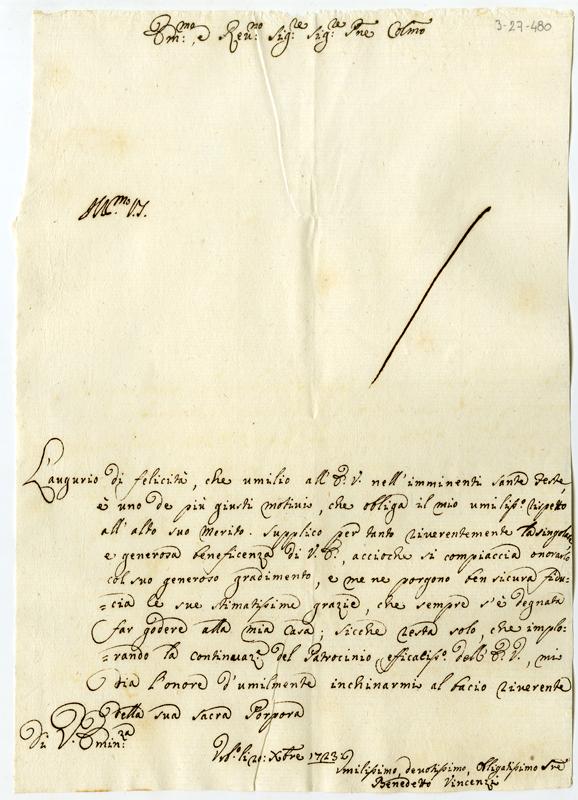 3-27-480
Em:mo e Reu:mo Sig:re Sig:re Pne Colmo
L'augurio di felicità, che umilio all'E.V. nell'imminenti Sante Feste,
è uno de più giusti motivi, che obliga il mio umiliss:o rispetto
all'alto suo Merito. Supplico per tanto riverentemente la singolare
e generosa beneficenza di V.E., accioche si compiaccia onorarlo
col suo generoso gradimento, e me ne porgono ben sicura fidu-
=cia le sue stimatissime grazie, che sempre s'è degnata
far godere alla mia Casa; sicche resta solo, che implo-
=rando la continuaz:e del Patrocinio efficaliss:o dell'E.V., mi
dia l'onore d'umilmente inchinarmi al bacio riverente
della sua Sacra Porpora
Di V. Emin:za
li 20: Xbre 1723
Umilissimo, devotissimo, Obligatissimo Sre
Benedetto Vincenzi